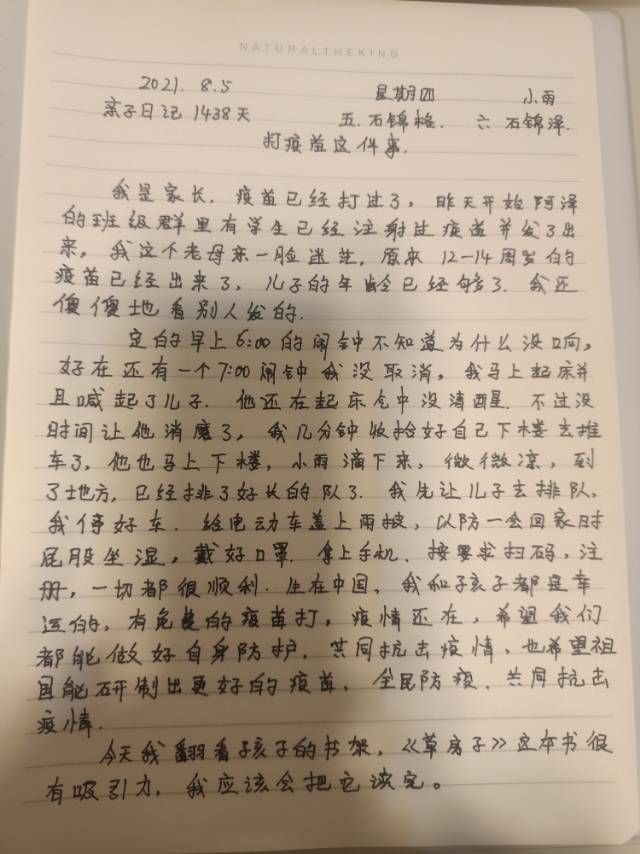 NATURALTHEKING
2021. 8.5 星期四 小雨
亲子日记 1438天 五. 石锦格. 六 石锦泽.
打疫苗这件事.
我是家长. 疫苗已经打过了, 昨天开始阿泽
的班级群里有学生已经注射过疫苗并发了出
来, 我这个老母亲一脸迷茫, 原来 12-14周岁的
疫苗已经出来了, 儿子的年龄已经够了. 我还
傻傻地看别人发的.
定的早上 6:00 的闹钟不知道为什么没响,
好在还有一个 7:00 闹钟我没取消, 我马上起床并
且喊起了儿子. 他还在起床气中没清醒. 不过没
时间让他消魔了, 我几分钟收拾好自己下楼去推
车了, 他也马上下楼, 小雨滴下来, 微微凉, 到
了地方, 已经排了好长的队了. 我先让儿子去排队,
我停好车. 给电动车盖上雨披, 以防一会回家时
屁股坐湿, 戴好口罩. 拿上手机. 按要求扫码, 注
册, 一切都很顺利. 生在中国, 我和孩子都是幸
运的, 有免费的疫苗打, 疫情还在, 希望我们
都能做好自身防护, 共同抗击疫情, 也希望祖
国能研制出更好的疫苗, 全民防疫. 共同抗击
疫情.
今天我翻看孩子的书架, 《草房子》这本书很
有吸引力, 我应该会把它读完。